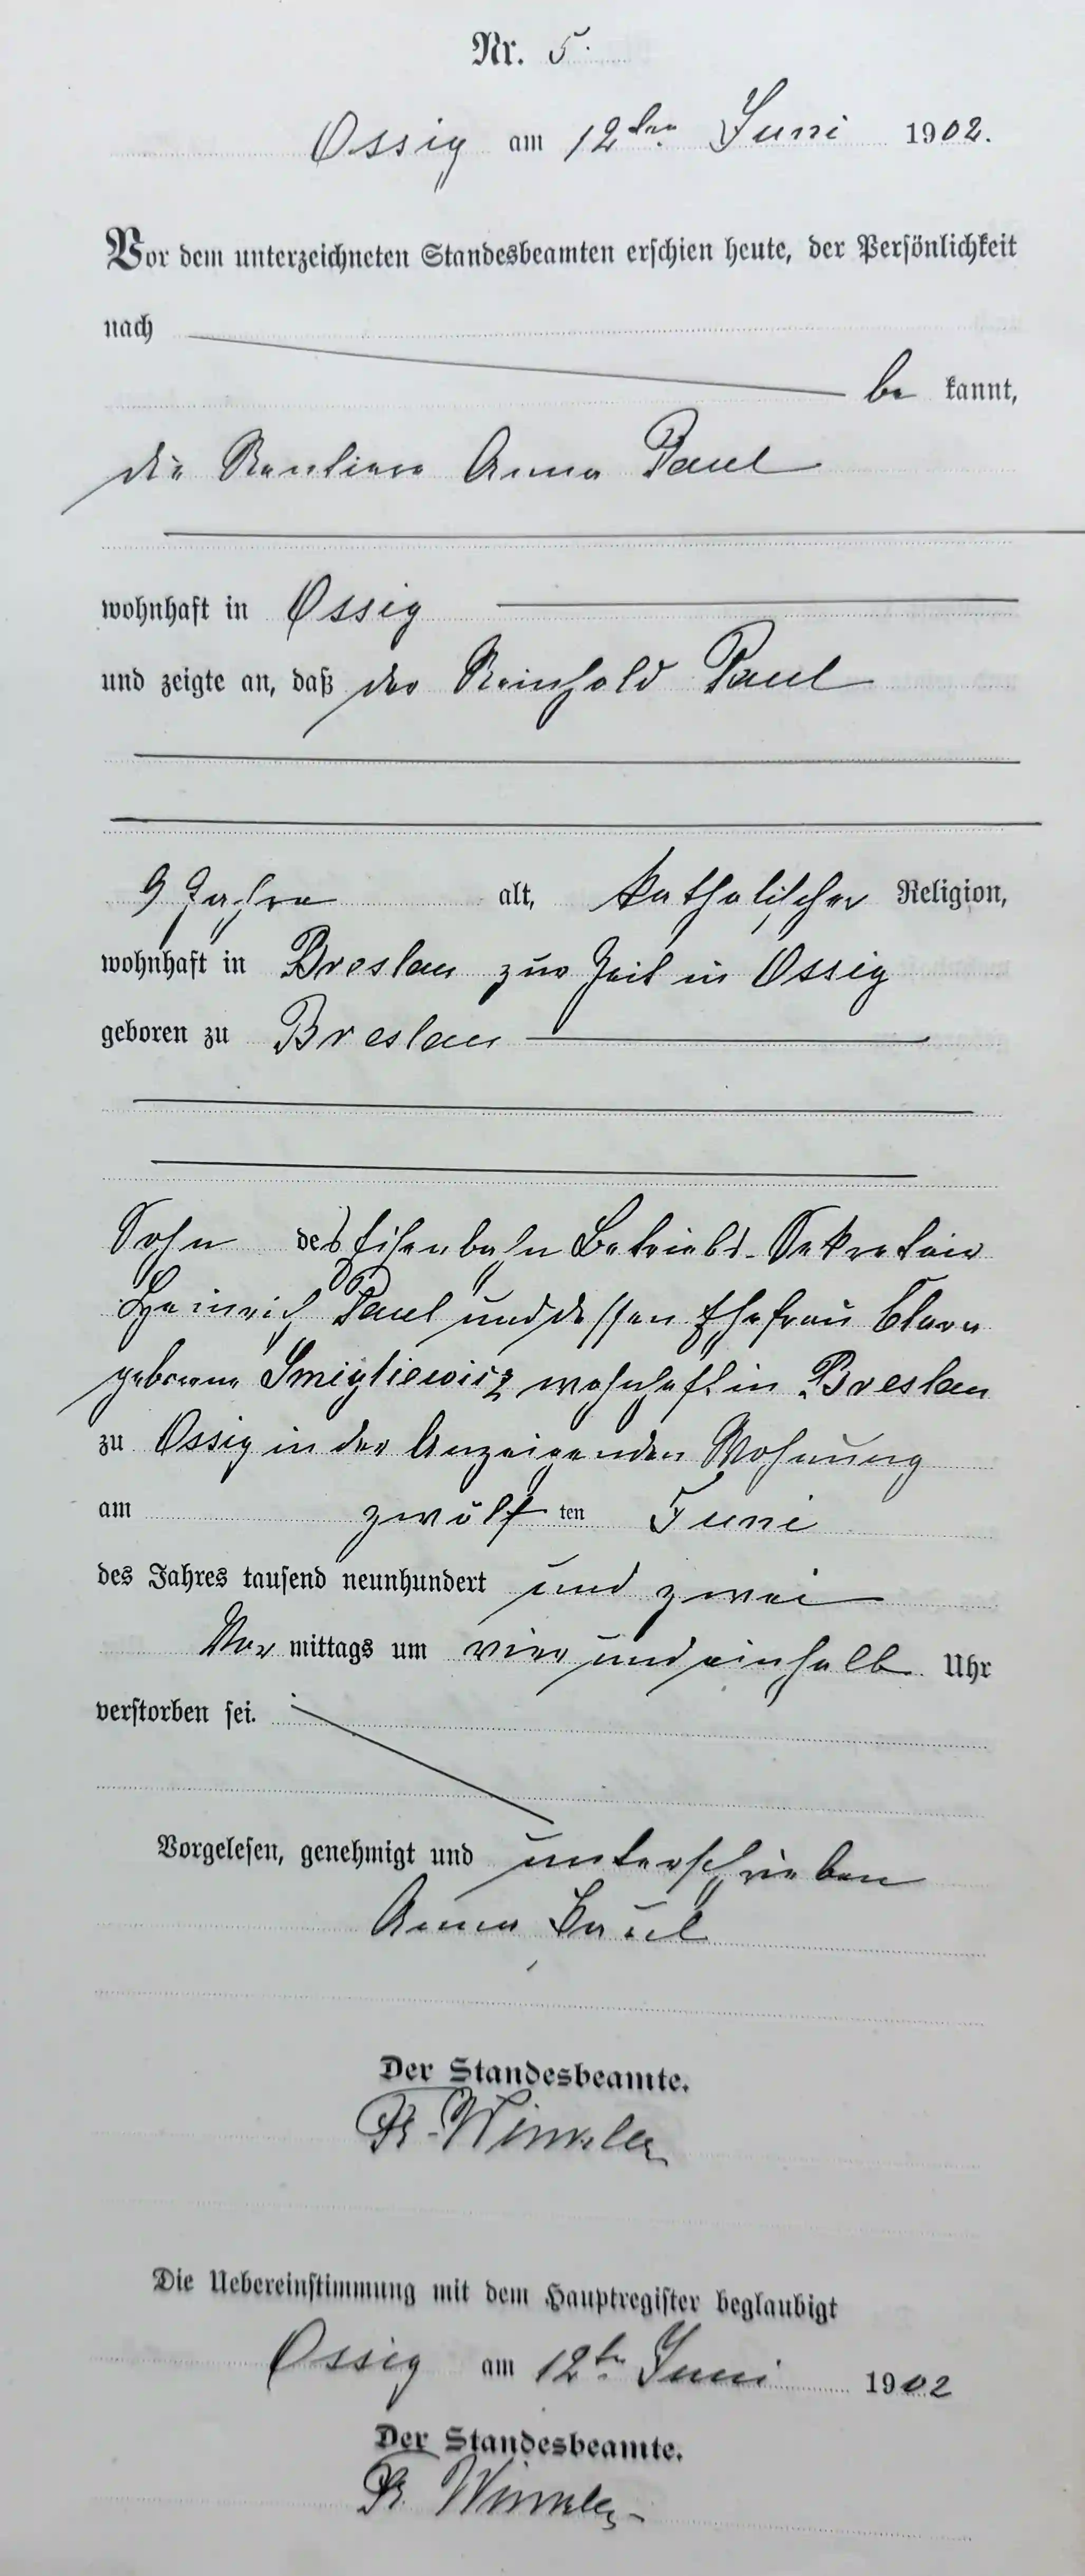 Nr. 5.
Ossig am 12ten Juni 1902.
Vor dem unterzeichneten Standesbeamten erschien heute, der Persönlichkeit
nach
be kannt,
die Rentiere Anna Paul
wohnhaft in Ossig
und zeigte an, daß der Reinhold Paul
9 Jahre alt, katholischer Religion,
wohnhaft in Breslau zur Zeit in Ossig
geboren zu Breslau
Sohn des Eisenbahn Betriebs-Sekretair
Heinrich Paul und dessen Ehefrau Clara
geborene Smigliewicz wohnhaft in Breslau
zu Ossig in der Anzeigenden Wohnung
am zwölf ten Juni
des Jahres tausend neunhundert und zwei
Vor mittags um vier und einhalb Uhr
verstorben sei.
Vorgelesen, genehmigt und unterschrieben
Anna Paul
Der Standesbeamte.
Fr. Winkler
Die Uebereinstimmung mit dem Hauptregister beglaubigt
Ossig am 12ten Juni 1902
Der Standesbeamte.
Fr. Winkler